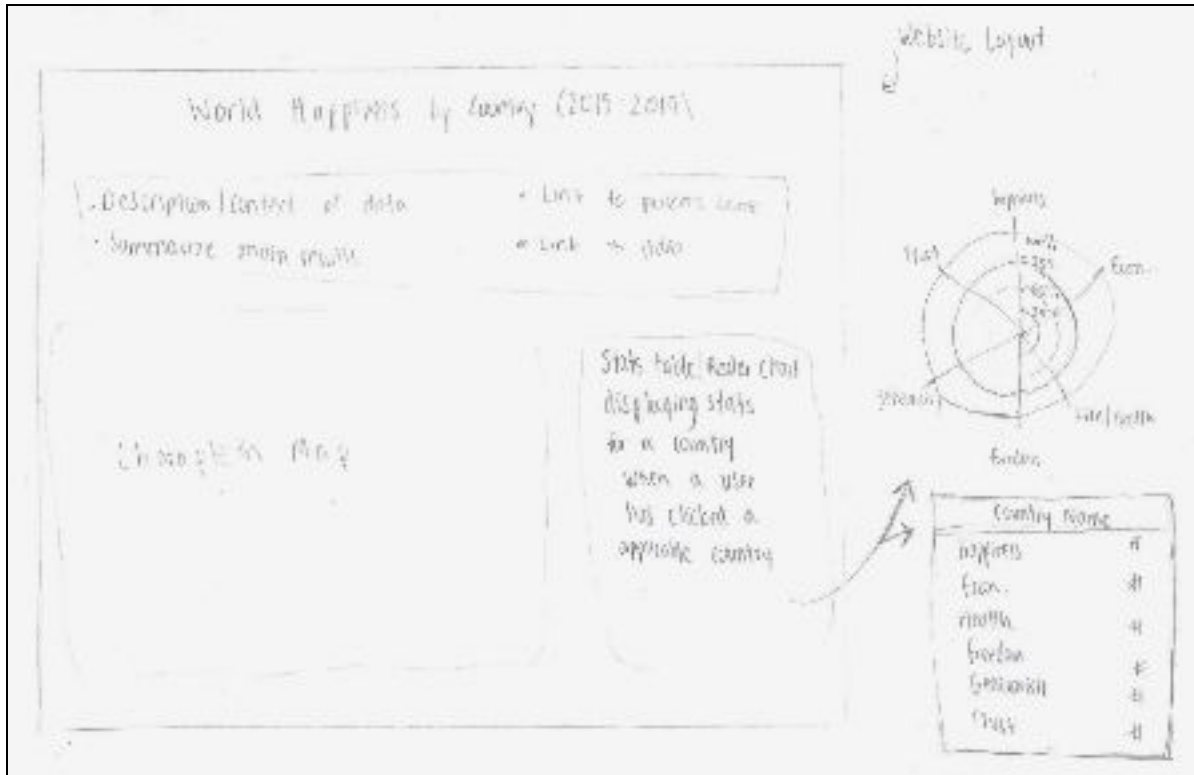 Website Layout
World Happiness by Country (2015 2019)
• Description/Context of data
• Link to
• Summarize main results
• Link to
Choropleth Map
Stats table/Radar Chart
displaying stats
for a country
when a user
has clicked a
applicable country
Happiness
100%
75%
Trust
Econ.
Freedom
Country Name
Happiness #
Econ. #
Health #
Freedom #
Generosity #
Trust #